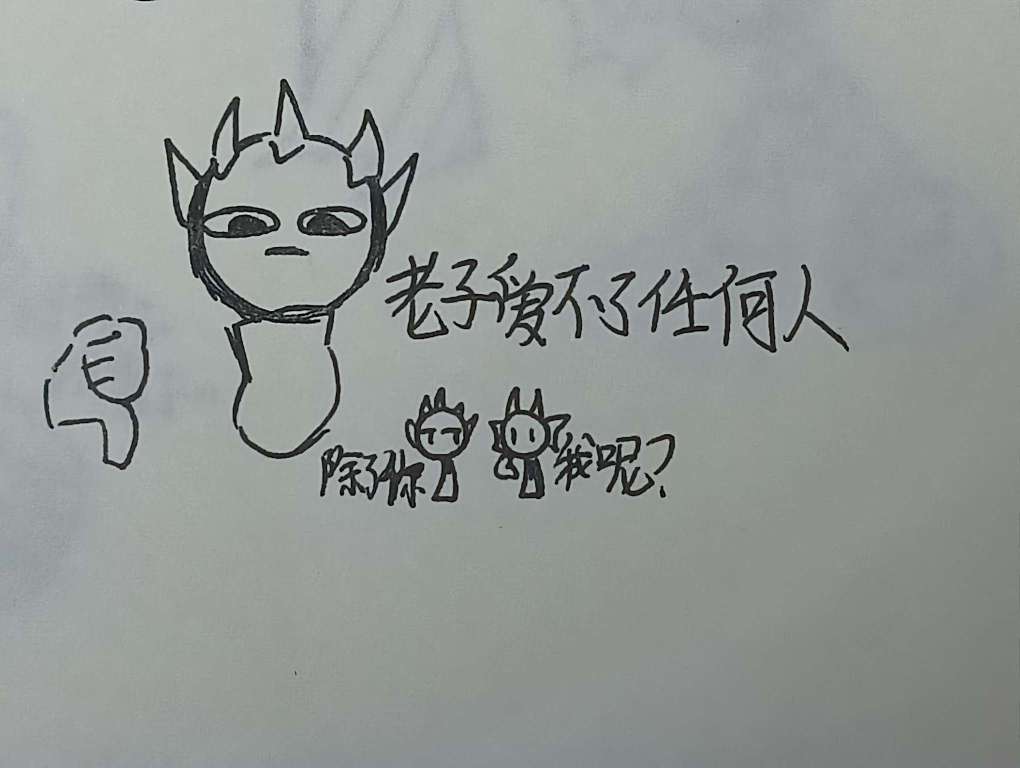 老子爱不了任何人
我呢？
除了你